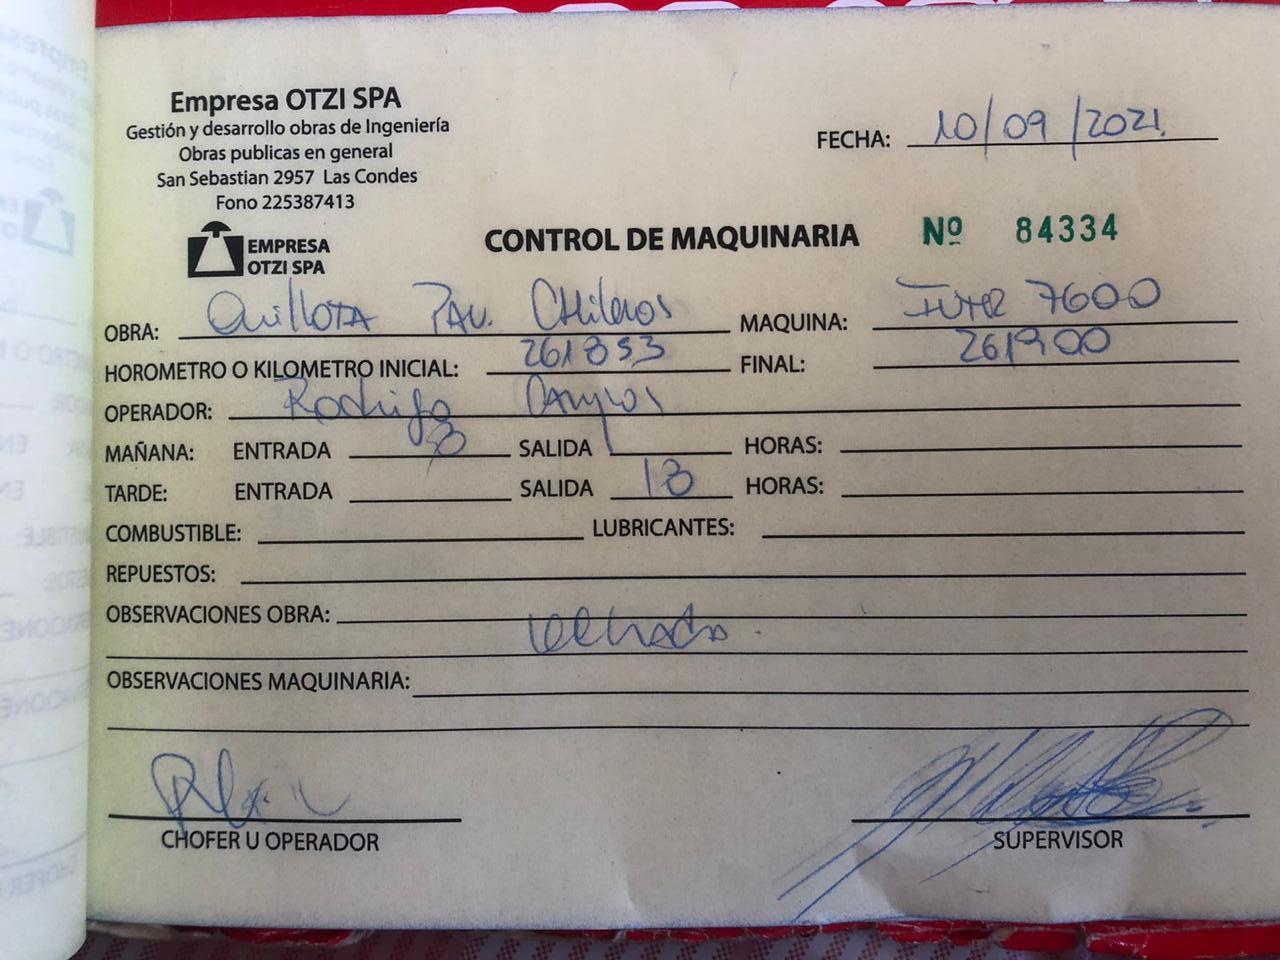 Empresa OTZI SPA
Gestión y desarrollo obras de Ingeniería
Obras publicas en general
San Sebastian 2957 Las Condes
Fono 225387413
FECHA: 10/09/2021.
EMPRESA
OTZI SPA
CONTROL DE MAQUINARIA Nº 84334
OBRA: Quillota Pav. Chilenos MAQUINA: Inter 7600
HOROMETRO O KILOMETRO INICIAL: 261853 FINAL: 261900
OPERADOR: Rodrigo Campos
MAÑANA: ENTRADA 8 SALIDA HORAS:
TARDE: ENTRADA SALIDA 18 HORAS:
COMBUSTIBLE: LUBRICANTES:
REPUESTOS:
OBSERVACIONES OBRA:
OBSERVACIONES MAQUINARIA:
CHOFER U OPERADOR SUPERVISOR